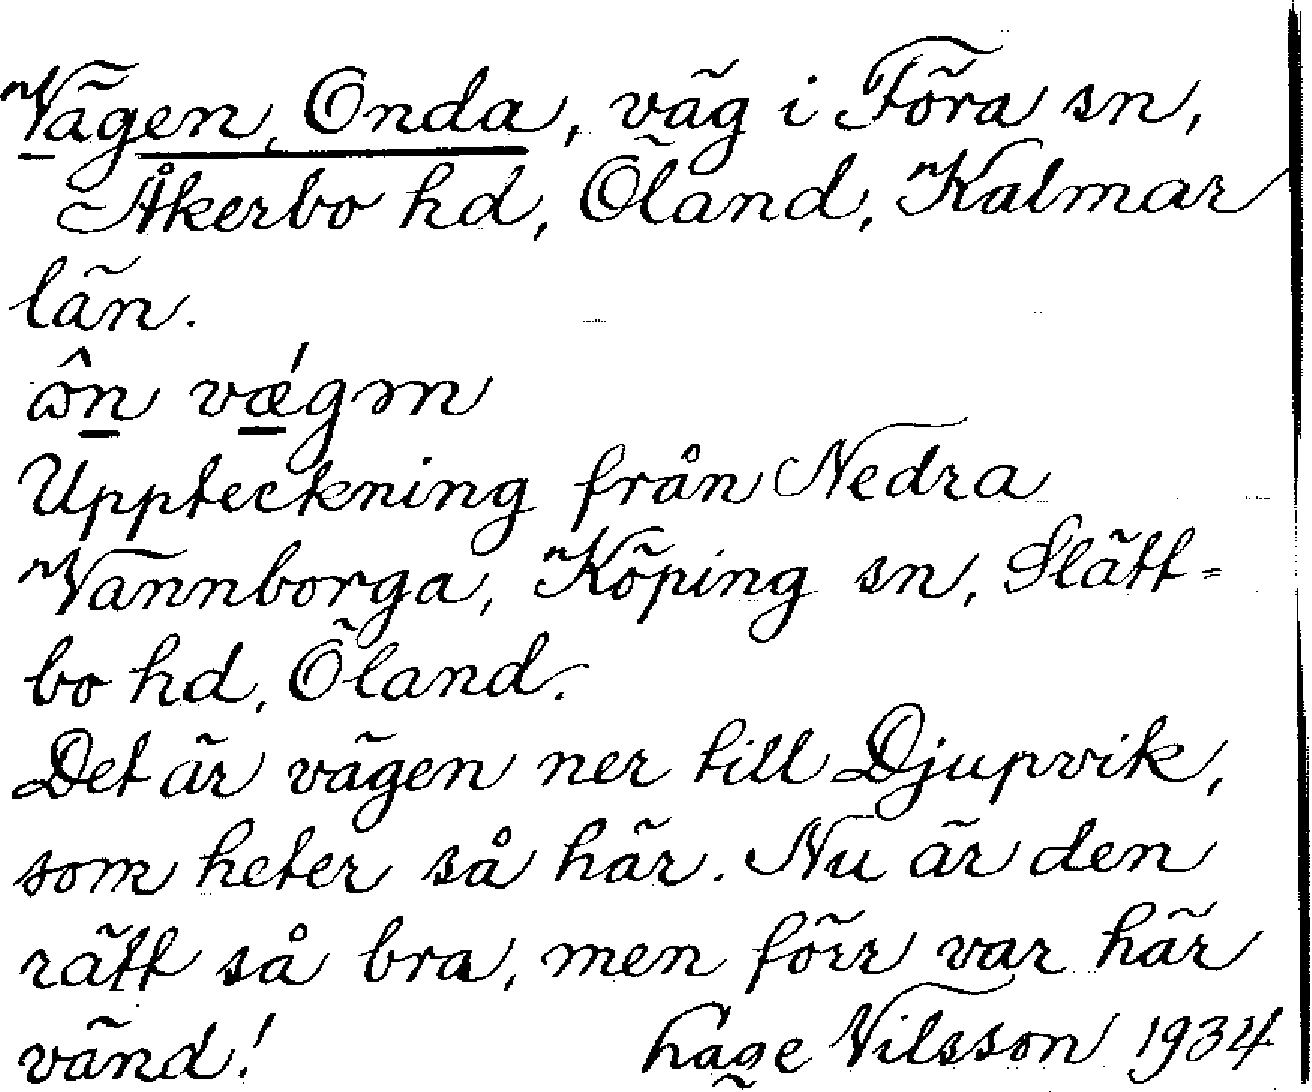 Vägen, Onda, väg i Föra sn,
Åkerbo hd, Öland, Kalmar
län.
ôn vǽgən
Uppteckning från Nedra
Vannborga, Köping sn, Slätt-
bo hd, Öland.
Det är vägen ner till Djupvik,
som heter så här. Nu är den
rätt så bra, men förr var här
vånd! Nilsson 1934